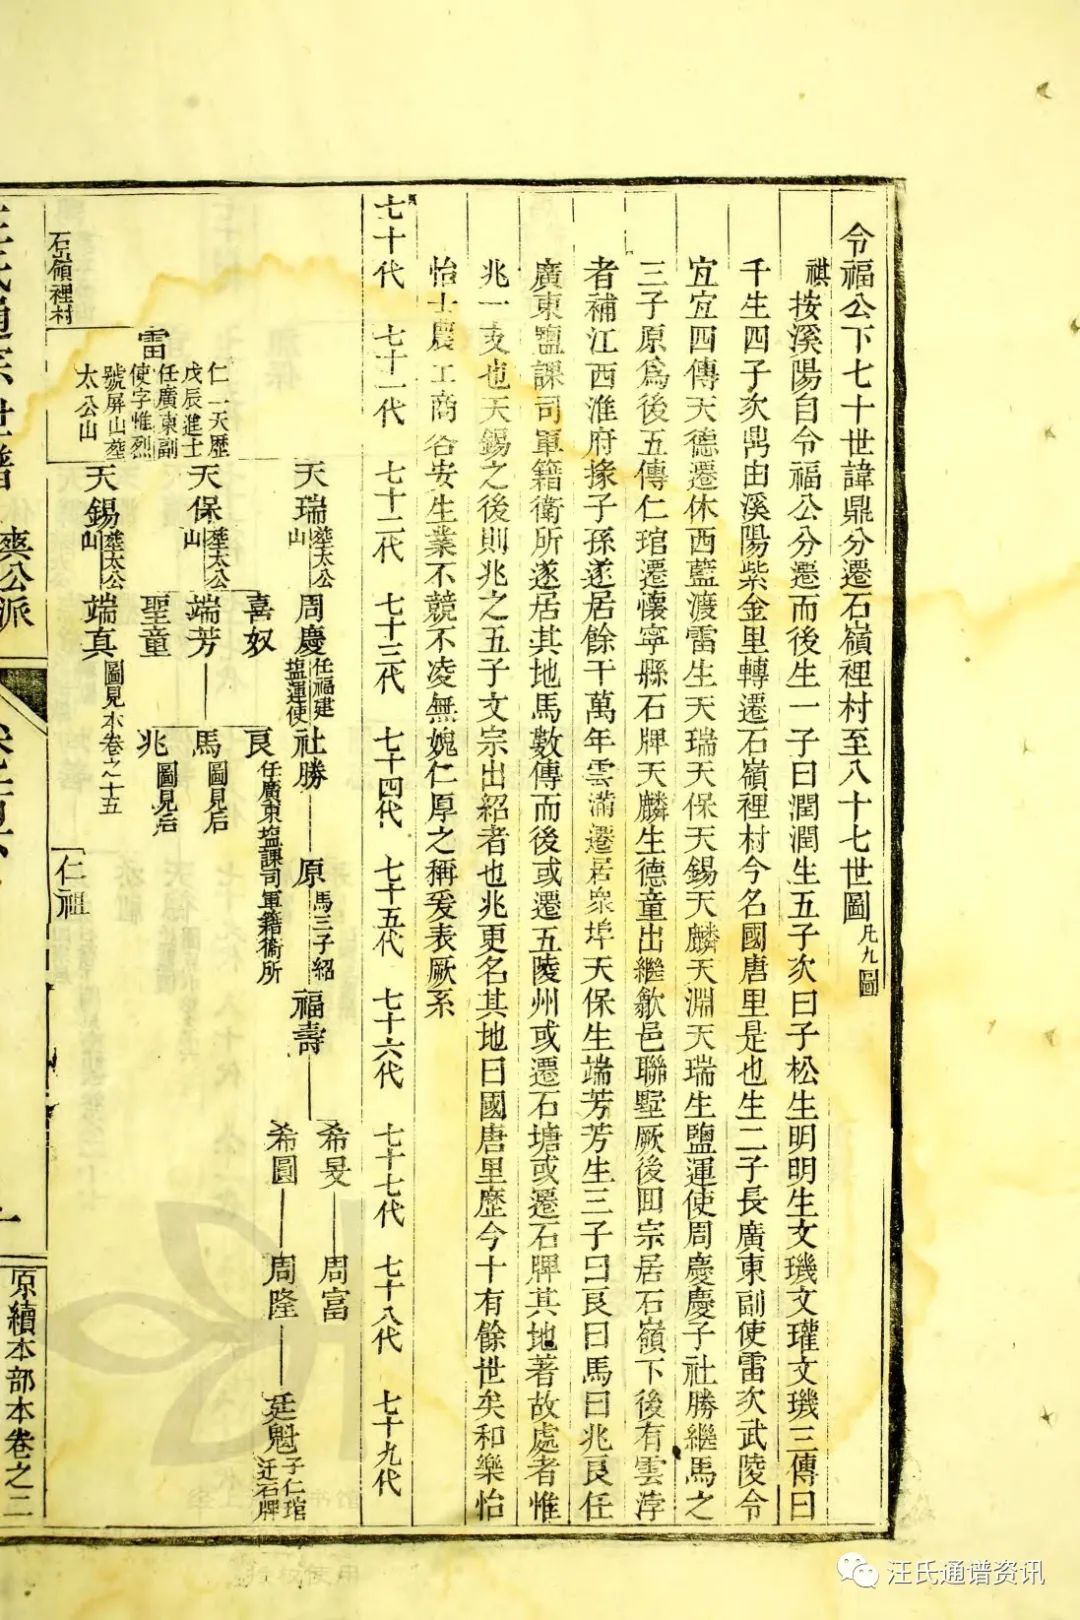 令福公下七十世諱鼎分遷石嶺裡村至八十七世圖凡九圖
祺按溪陽自令福公分遷而後生一子曰潤潤生五子次曰子松生明明生文璣文瓘文璣三傳曰
千生四子次鼎由溪陽紫金里轉遷石嶺裡村今名國唐里是也生二子長廣東副使雷次武陵令
宜宜四傳天德遷休西藍渡雷生天瑞天保天錫天麟天淵天瑞生鹽運使周慶慶子社勝繼馬之
三子原為後五傳仁琯遷懷寧縣石牌天麟生德童出繼歙邑聯墅厥後回宗居石嶺下後有雲涬
者補江西淮府掾子孫遂居餘干萬年雲滿遷居衆埠天保生端芳芳生三子曰良曰馬曰兆良任
廣東鹽課司軍籍衛所遂居其地馬數傳而後或遷五陵州或遷石塘或遷石牌其地著故處者惟
兆一支也天錫之後則兆之五子文宗出紹者也兆更名其地曰國唐里歷今十有餘世矣和樂怡
怡士農工商各安生業不競不凌無媿仁厚之稱爰表厥系
七十代 七十一代 七十二代 七十三代 七十四代 七十五代 七十六代 七十七代 七十八代 七十九代
天瑞 葬太公山
周慶 任福建塩運使
社勝
原 馬三子紹
福壽
希旻
周富
希圓
周隆
廷魁 子仁琯迁石牌
喜奴
良 任廣東塩課司軍籍衞所
雷 仁一天歷戊辰進士任廣東副使字惟烈號屏山葬太公山
天保 葬太公山
端芳
馬 圖見后
聖童
兆 圖見后
天錫 葬太公山
端真 圖見本卷之十五
石嶺裡村
仁祖
汪氏通宗世譜
爽公派
原續本部本卷之二
汪氏通谱资讯